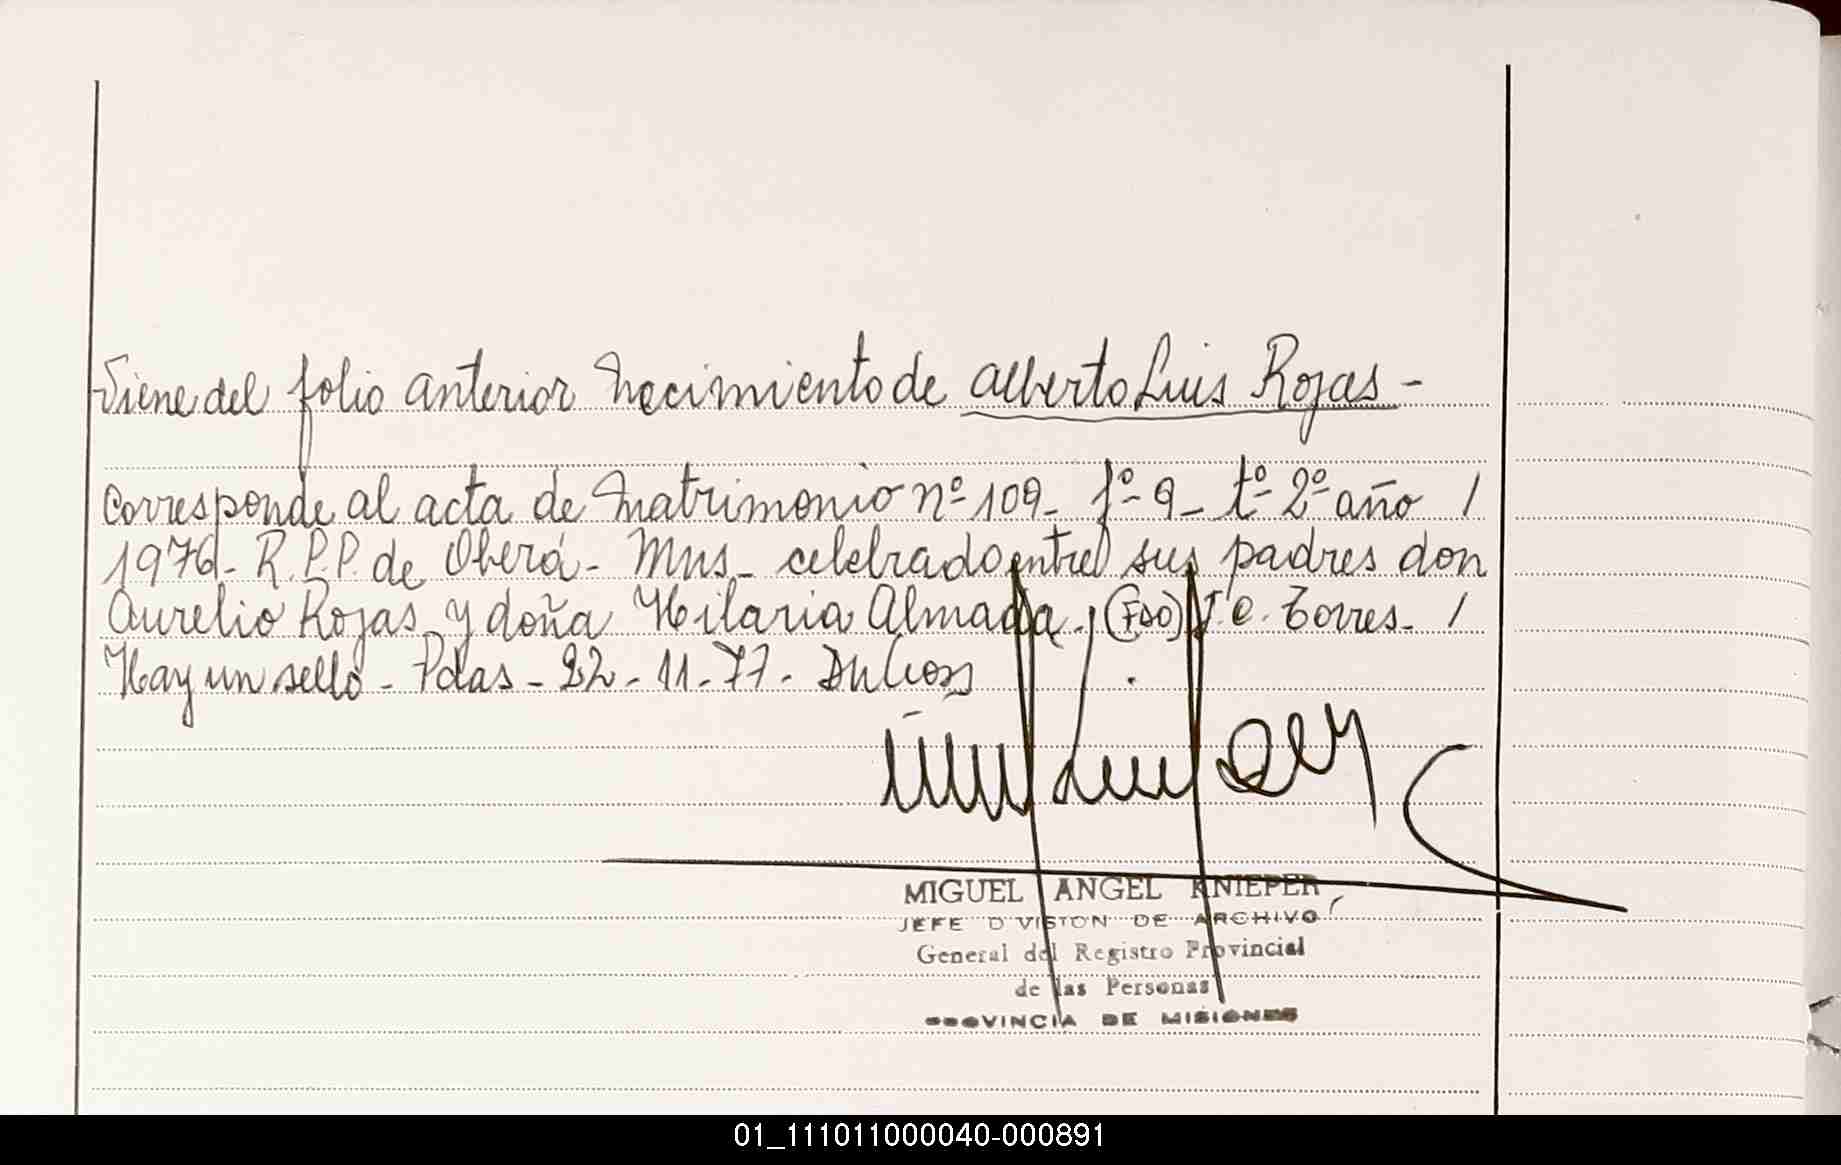 Viene del folio anterior Nacimiento de Alberto Luis Rojas -
Corresponde al acta de Matrimonio nº 109_ fº- 9_ tº- 2º- año /
1976_ R.P.P. de Oberá- Mns_ celebrado entre sus padres don
Aurelio Rojas y doña Hilaria Almada. (Fdo) J.C. Torres_ /
Hay un sello - Pdas - 22 - 11 - 77 -
MIGUEL ANGEL KNIEPER
JEFE DIVISION DE ARCHIVO
General del Registro Provincial
de las Personas
PROVINCIA DE MISIONES
01_111011000040-000891